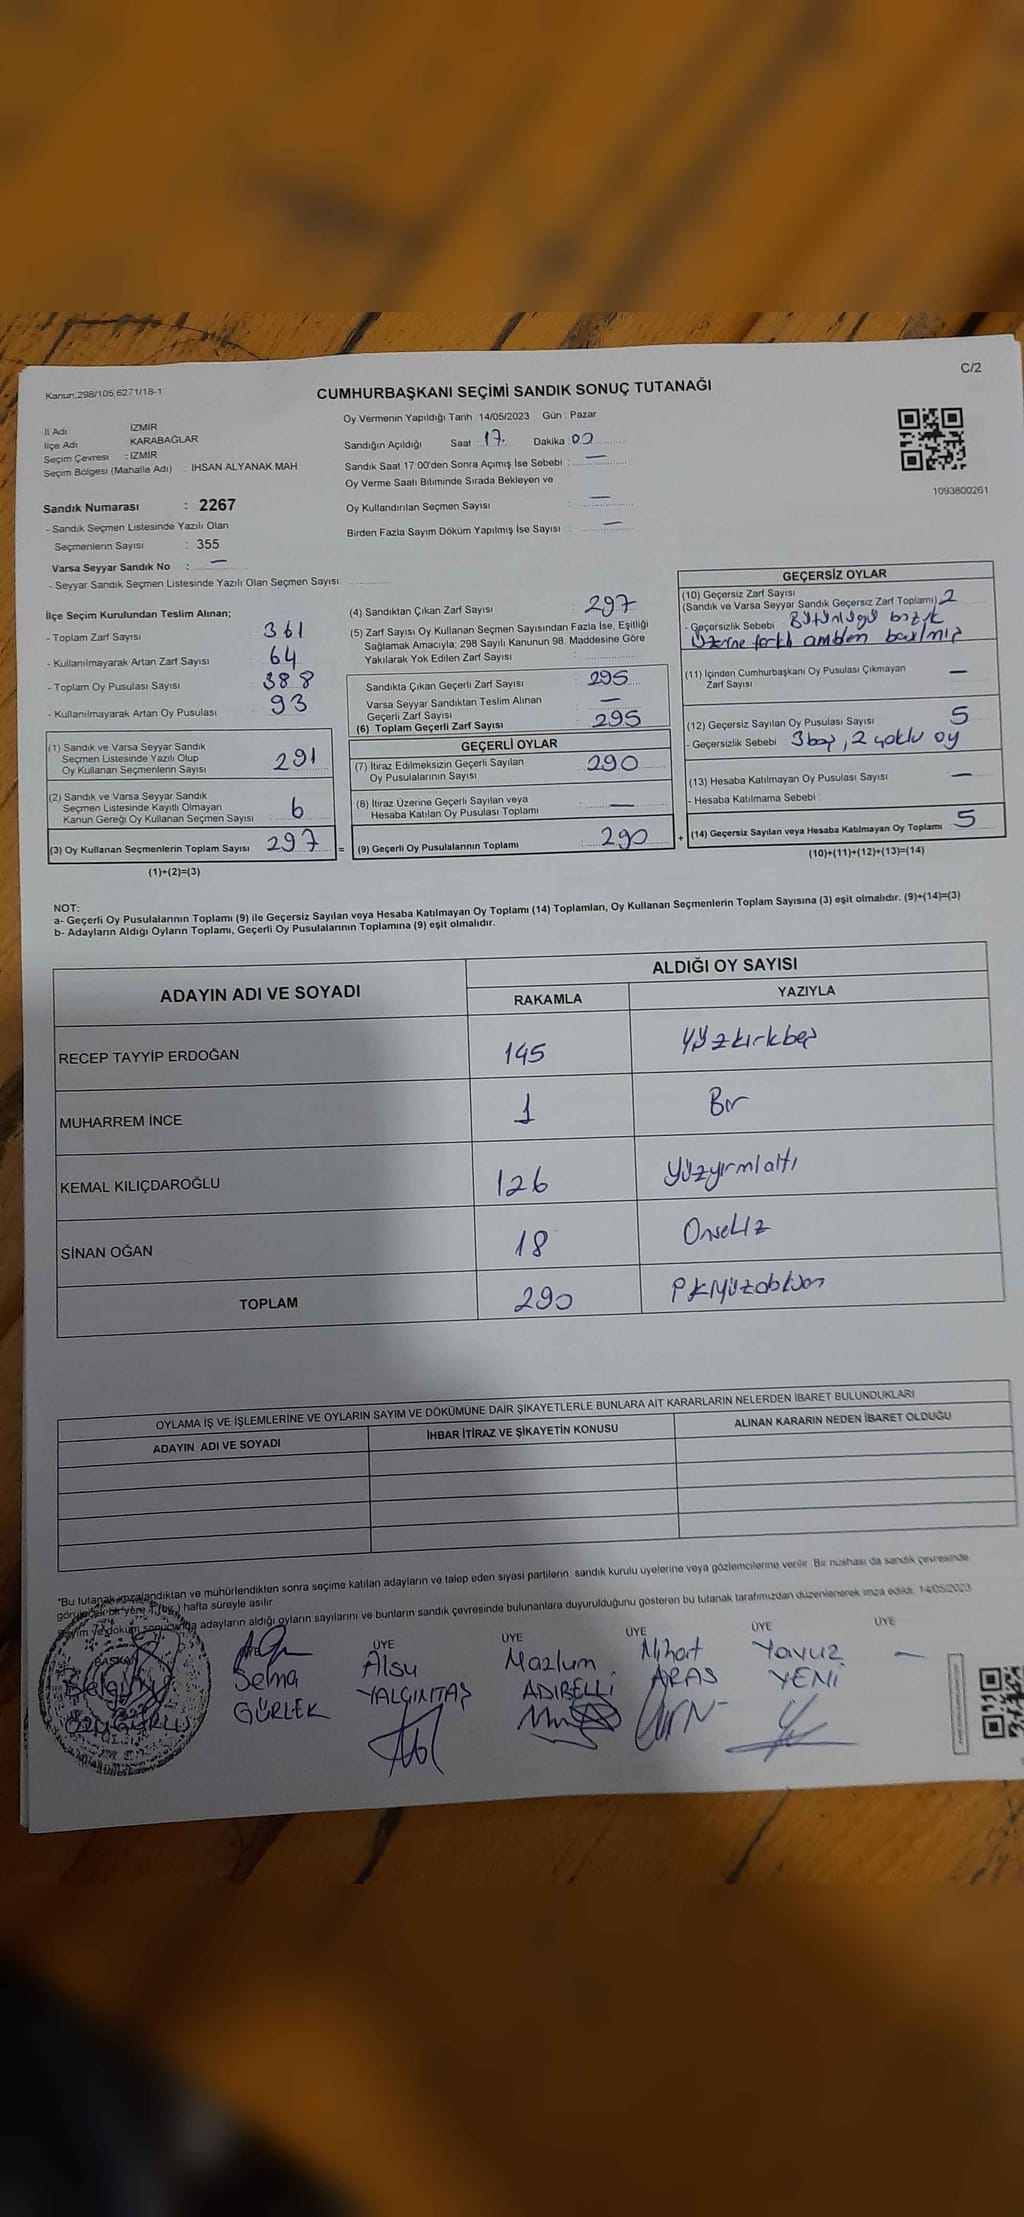 C/2
Kanun:298/105,6271/18-1
CUMHURBAŞKANI SEÇİMİ SANDIK SONUÇ TUTANAĞI
İl Adı İZMİR
İlçe Adı KARABAĞLAR
Seçim Çevresi : İZMİR
Seçim Bölgesi (Mahalle Adı) : İHSAN ALYANAK MAH.
Sandık Numarası : 2267
- Sandık Seçmen Listesinde Yazılı Olan
Seçmenlerin Sayısı : 355
Varsa Seyyar Sandık No : —
- Seyyar Sandık Seçmen Listesinde Yazılı Olan Seçmen Sayısı:
Oy Vermenin Yapıldığı Tarih : 14/05/2023 Gün : Pazar
Sandığın Açıldığı Saat : 17. Dakika : 00
Sandık Saat 17:00'den Sonra Açımış İse Sebebi : —
Oy Verme Saati Bitiminde Sırada Bekleyen ve
Oy Kullandırılan Seçmen Sayısı : —
Birden Fazla Sayım Döküm Yapılmış İse Sayısı : —
1093800261
İlçe Seçim Kurulundan Teslim Alınan;
- Toplam Zarf Sayısı : 361
- Kullanılmayarak Artan Zarf Sayısı : 64
- Toplam Oy Pusulası Sayısı : 388
- Kullanılmayarak Artan Oy Pusulası : 93
(1) Sandık ve Varsa Seyyar Sandık
Seçmen Listesinde Yazılı Olup
Oy Kullanan Seçmenlerin Sayısı : 291
(2) Sandık ve Varsa Seyyar Sandık
Seçmen Listesinde Kayıtlı Olmayan
Kanun Gereği Oy Kullanan Seçmen Sayısı : 6
(3) Oy Kullanan Seçmenlerin Toplam Sayısı 297 =
(1)+(2)=(3)
(4) Sandıktan Çıkan Zarf Sayısı : 297
(5) Zarf Sayısı Oy Kullanan Seçmen Sayısından Fazla İse, Eşitliği
Sağlamak Amacıyla, 298 Sayılı Kanunun 98. Maddesine Göre
Yakılarak Yok Edilen Zarf Sayısı :
Sandıkta Çıkan Geçerli Zarf Sayısı : 295
Varsa Seyyar Sandıktan Teslim Alınan
Geçerli Zarf Sayısı : —
(6) Toplam Geçerli Zarf Sayısı : 295
GEÇERLİ OYLAR
(7) İtiraz Edilmeksizin Geçerli Sayılan
Oy Pusulalarının Sayısı : 290
(8) İtiraz Üzerine Geçerli Sayılan veya
Hesaba Katılan Oy Pusulası Toplamı : —
(9) Geçerli Oy Pusulalarının Toplamı : 290 +
GEÇERSİZ OYLAR
(10) Geçersiz Zarf Sayısı
(Sandık ve Varsa Seyyar Sandık Geçersiz Zarf Toplamı) 2
- Geçersizlik Sebebi : Bütünlüğü bozuk
Üzerine farklı amblem basılmış
(11) İçinden Cumhurbaşkanı Oy Pusulası Çıkmayan
Zarf Sayısı —
(12) Geçersiz Sayılan Oy Pusulası Sayısı 5
- Geçersizlik Sebebi : 3 boş, 2 çoklu oy
(13) Hesaba Katılmayan Oy Pusulası Sayısı —
- Hesaba Katılmama Sebebi :
(14) Geçersiz Sayılan veya Hesaba Katılmayan Oy Toplamı 5
(10)+(11)+(12)+(13)=(14)
NOT:
a- Geçerli Oy Pusulalarının Toplamı (9) ile Geçersiz Sayılan veya Hesaba Katılmayan Oy Toplamı (14) Toplamları, Oy Kullanan Seçmenlerin Toplam Sayısına (3) eşit olmalıdır. (9)+(14)=(3)
b- Adayların Aldığı Oyların Toplamı, Geçerli Oy Pusulalarının Toplamına (9) eşit olmalıdır.
ADAYIN ADI VE SOYADI
ALDIĞI OY SAYISI
RAKAMLA YAZIYLA
RECEP TAYYİP ERDOĞAN 145 Yüzkırkbeş
MUHARREM İNCE 1 Bir
KEMAL KILIÇDAROĞLU 126 Yüzyirmialtı
SİNAN OĞAN 18 Onsekiz
TOPLAM 290 İkiyüzdoksan
OYLAMA İŞ VE İŞLEMLERİNE VE OYLARIN SAYIM VE DÖKÜMÜNE DAİR ŞİKAYETLERLE BUNLARA AİT KARARLARIN NELERDEN İBARET BULUNDUKLARI
ADAYIN ADI VE SOYADI İHBAR İTİRAZ VE ŞİKAYETİN KONUSU ALINAN KARARIN NEDEN İBARET OLDUĞU
*Bu tutanak imzalandıktan ve mühürlendikten sonra seçime katılan adayların ve talep eden siyasi partilerin sandık kurulu üyelerine veya gözlemcilerine verilir. Bir nüshası da sandık çevresinde
görülecek bir yere 1 (bir) hafta süreyle asılır.
Sayım ve döküm sonucunda adayların aldığı oyların sayılarını ve bunların sandık çevresinde bulunanlara duyurulduğunu gösteren bu tutanak tarafımızdan düzenlenerek imza edildi. 14/05/2023
BAŞKAN ÜYE ÜYE ÜYE ÜYE ÜYE
Selma Alsu Mazlum Nihat Yavuz —
GÜRLEK YALÇINTAŞ ADIBELLİ ARAS YENİ